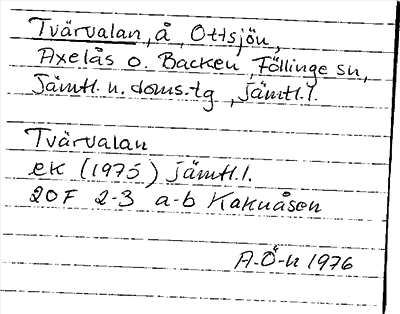 Tvärvalan, å, Ottsjön,
Axelås o. Backen, Föllinge sn,
Jämtl. n. doms-tg, Jämtl. l.
Tvärvalan
ek (1975) Jämtl. l.
20F 2-3 a-b Kaknåsen
A.Ö-n 1976